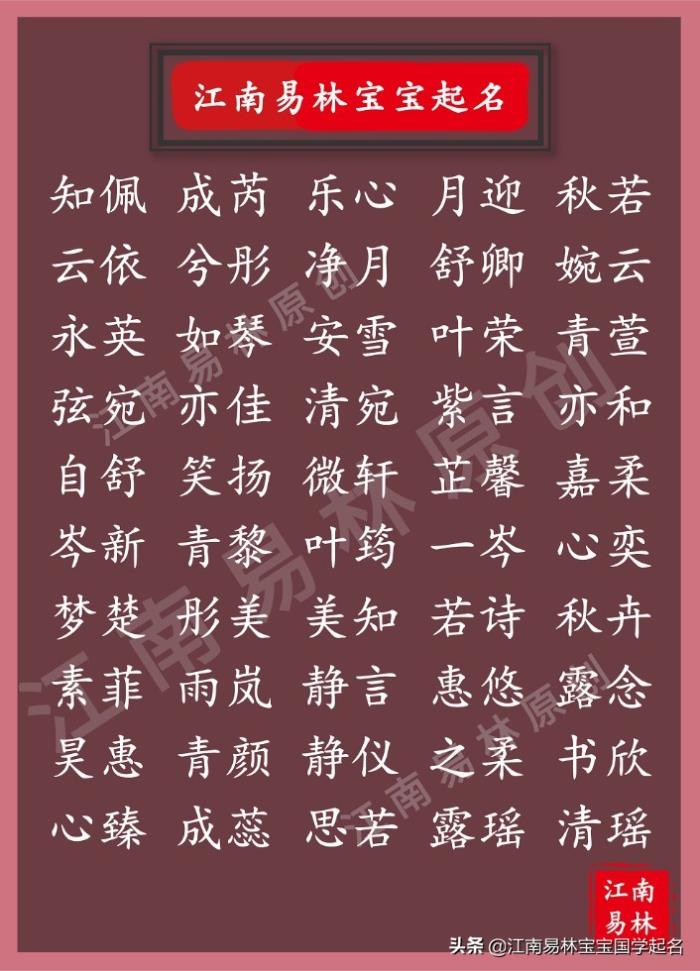 江南易林宝宝起名
知佩 成芮 乐心 月迎 秋若
云依 兮彤 净月 舒卿 婉云
永英 如琴 安雪 叶荣 青萱
弦宛 亦佳 清宛 紫言 亦和
自舒 笑扬 微轩 芷馨 嘉柔
岑新 青黎 叶筠 一岑 心奕
梦楚 彤美 美知 若诗 秋卉
素菲 雨岚 静言 惠悠 露念
昊惠 青颜 静仪 之柔 书欣
心臻 成蕊 思若 露瑶 清瑶
江南易林原创
江南易林原创
江南易林原创
江南
易林
头条 @江南易林宝宝国学起名